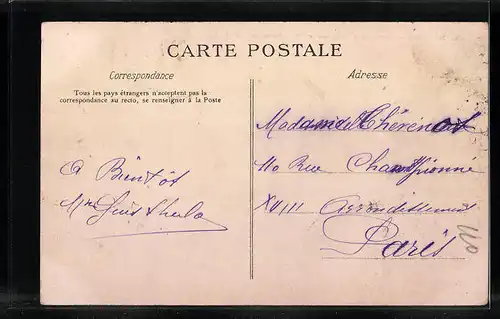 CARTE POSTALE
Correspondance
Adresse
Tous les pays étrangers n'acceptent pas la
correspondance au recto, se renseigner à la Poste
à Bientôt
110 Rue Championné
XVIII Arrondissement
Paris
110